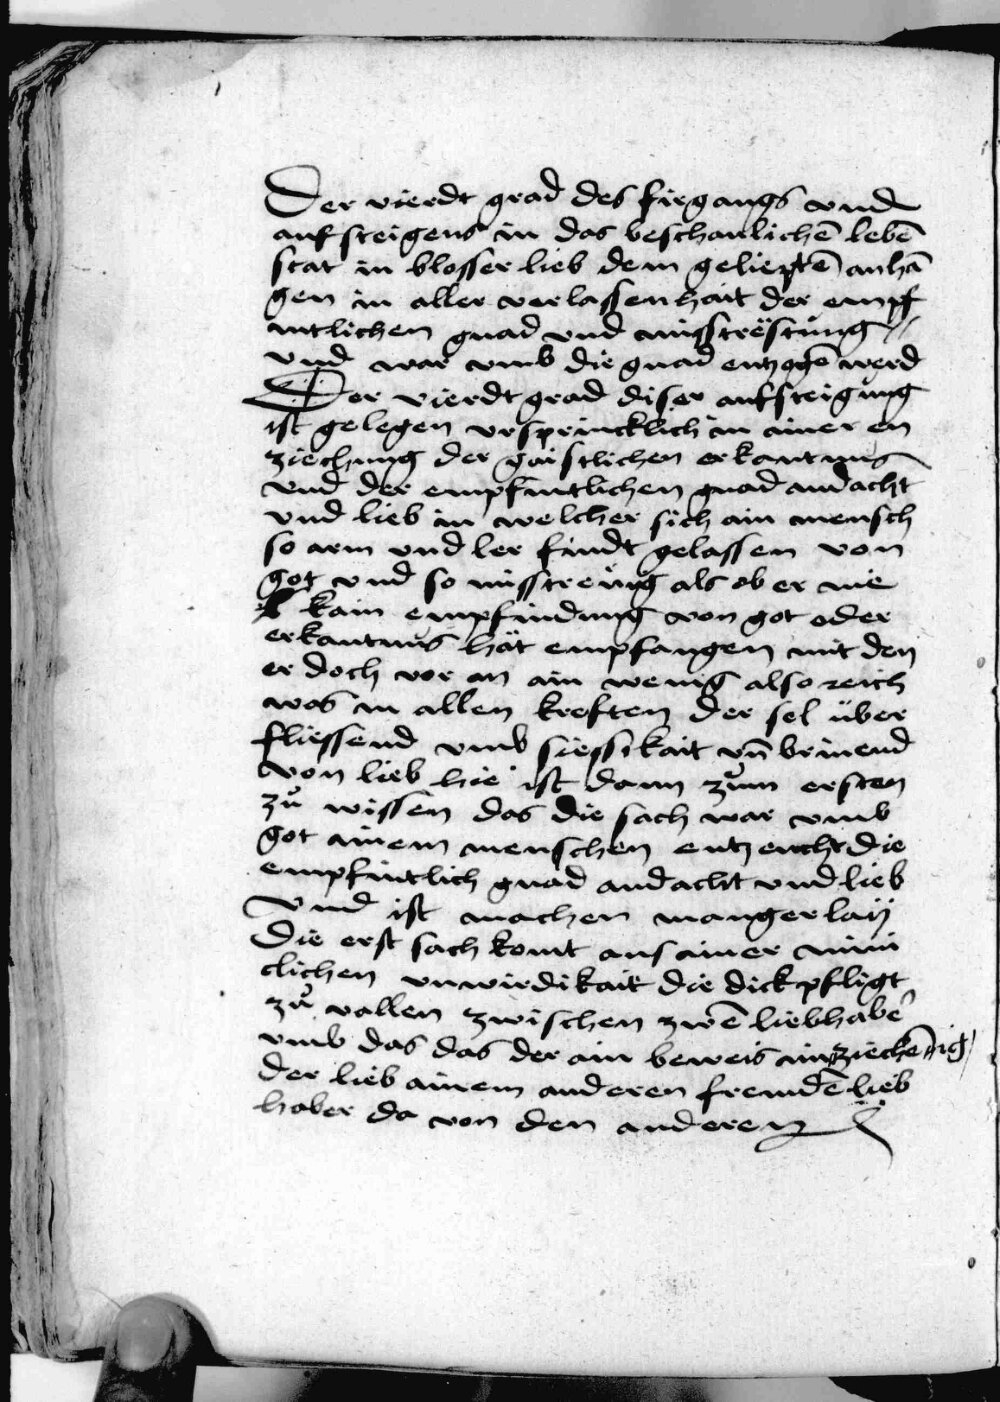 Der vierdt grad des firgangs vnd
aufsteigens in das beschaulichē lebē
stat in blosser lieb dem gelieptē anhā
gen in aller verlassenhait der empf
intlichen gnad vnd misströstung
vnd war vmb die gnad entzogē werd
Der vierdt grad diser aufsteigung
ist gelegen vrsprincklich in ainer en
ziechung der gaistlichen erkantnus
vnd der empfintlichen gnad andacht
vnd lieb in welcher sich ain mensch
so arm vnd ler findt gelassen von
got vnd so misstreüig als ob er nie
kain empfindung von got oder
erkantnus hät empfangen mit den
er doch vor an ain wenig also reich
was in allen kreften der sel über
fliessend vmb siessikait vn̄ brinend
von lieb hie ist dann zům ersten
zů wissen das die sach war vmb
got ainem menschen entzeucht die
empfintlich gnad andacht vnd lieb
vnd ist machen mangerlaij
Die erst sach komt aus ainer mini
clichen vnwirdikait die dick pfligt
zů vallen zwischen zwē liebhabē
vmb das das der ain beweis ainziechēnig
der lieb ainem anderen fremdē lieb
haber da von den anderen